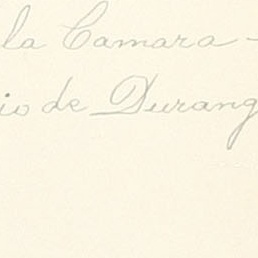 la Camara -
io de Durang